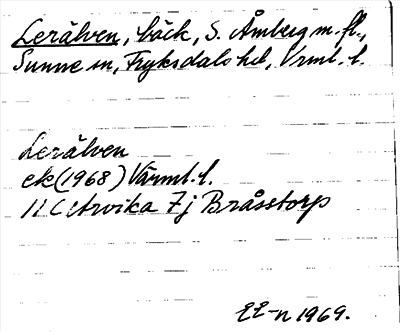 Lerälven, bäck, S. Åmberg m. fl.,
Sunne sn, Fryksdals hd, Vrml. l.
Lerälven
ek (1968) Värml. l.
11 C Arvika 7j Bråsstorp
EE-n 1969.